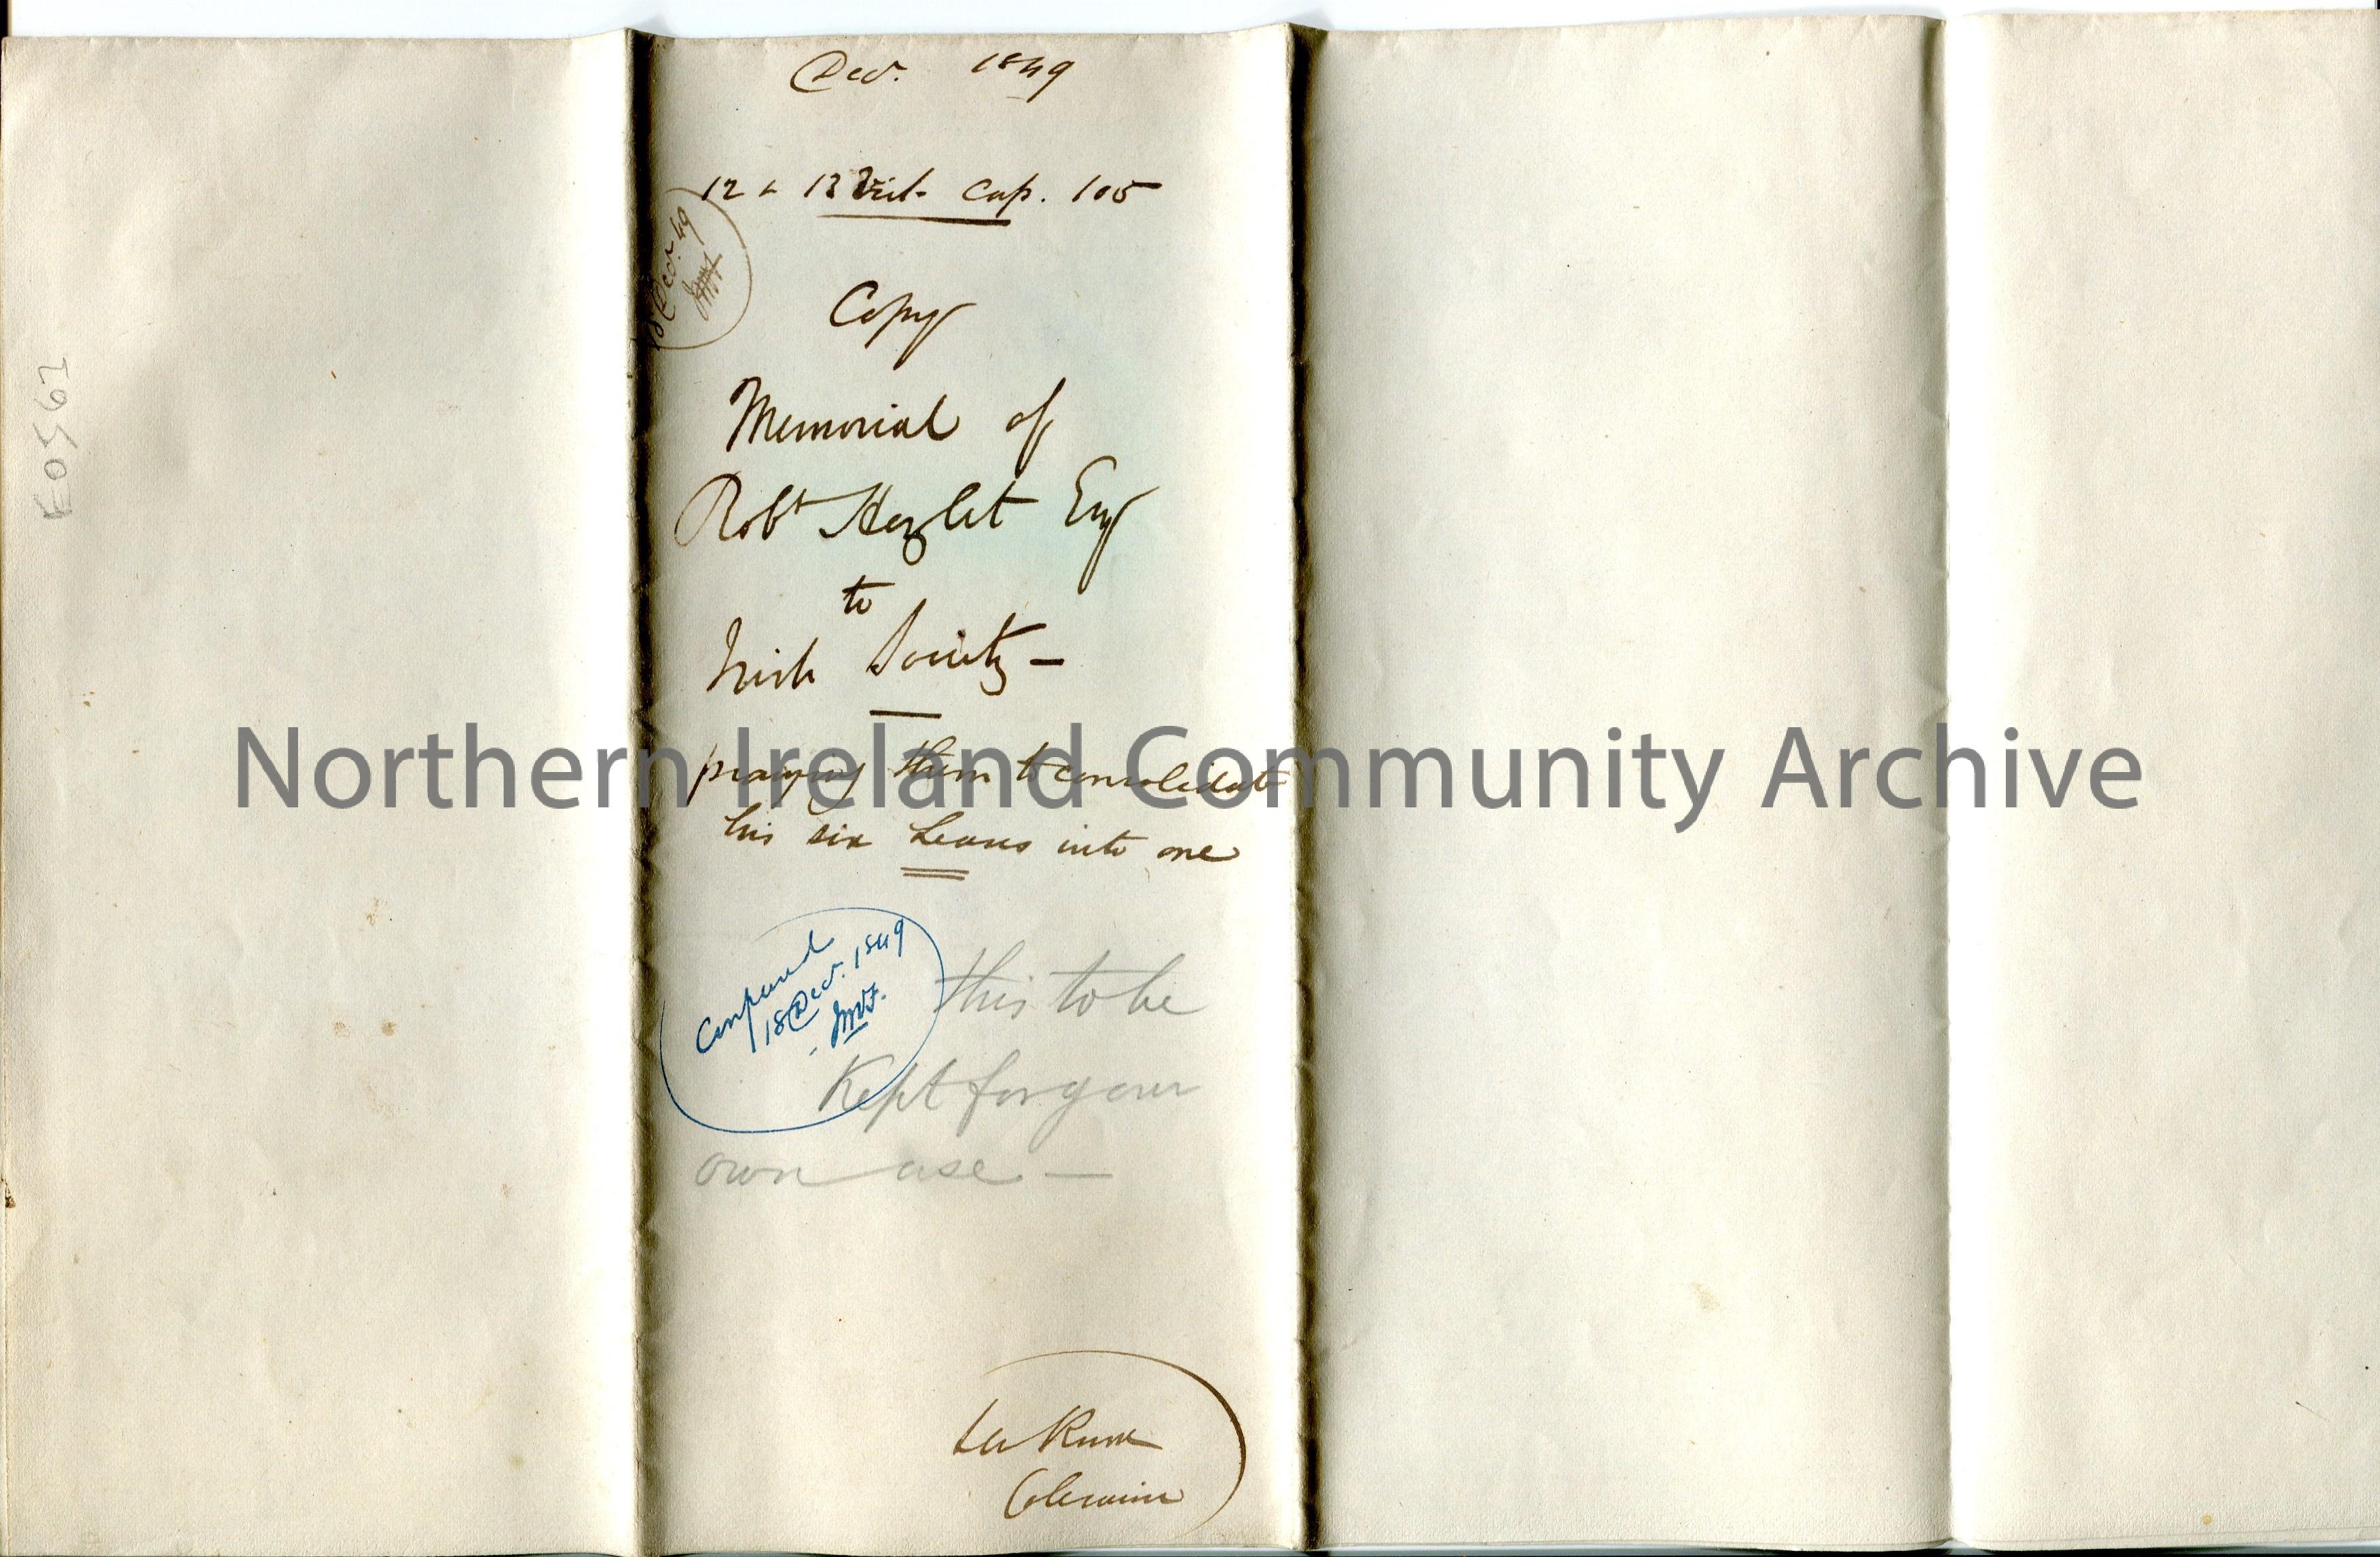 Decr. 1849
12 & 13 Vict. Cap. 105
18 Decr. 49
Copy
Memorial of
Robt Hezlet Esq
to
Irish Society –
praying them to consolidate
his six Leases into one
Compared
18 Decr. 1849
this to be
Kept for your
own use –
Coleraine
E0561
Northern Ireland Community Archive